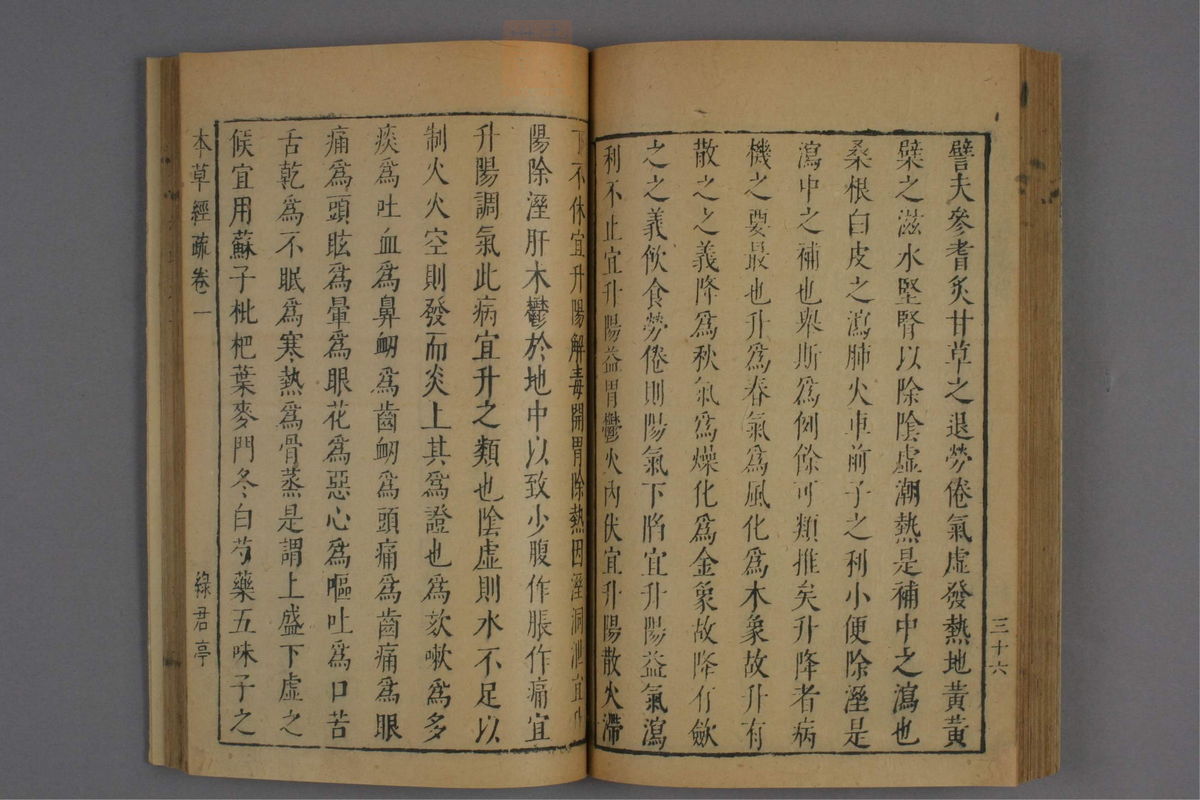 三十六
譬夫參耆炙甘草之退勞倦氣虛發熱地黃黃
蘗之滋水堅腎以除陰虛潮熱是補中之瀉也
桑根白皮之瀉肺火車前子之利小便除溼是
瀉中之補也舉斯爲例餘可類推矣升降者病
機之要最也升爲春氣爲風化爲木象故升有
散之之義降爲秋氣爲燥化爲金象故降有斂
之之義飲食勞倦則陽氣下陷宜升陽益氣瀉
利不止宜升陽益胃鬱火內伏宜升陽散火滯
下不休宜升陽解毒開胃除熱因溼洞泄宜升
陽除溼肝木鬱於地中以致少腹作脹作痛宜
升陽調氣此病宜升之類也陰虛則水不足以
制火火空則發而炎上其爲證也爲欬嗽爲多
痰爲吐血爲鼻衂爲齒衂爲頭痛爲齒痛爲眼
痛爲頭眩爲暈爲眼花爲惡心爲嘔吐爲口苦
舌乾爲不眠爲寒熱爲骨蒸是謂上盛下虛之
候宜用蘇子枇杷葉麥門冬白芍藥五味子之
本草經疏卷一
綠君亭